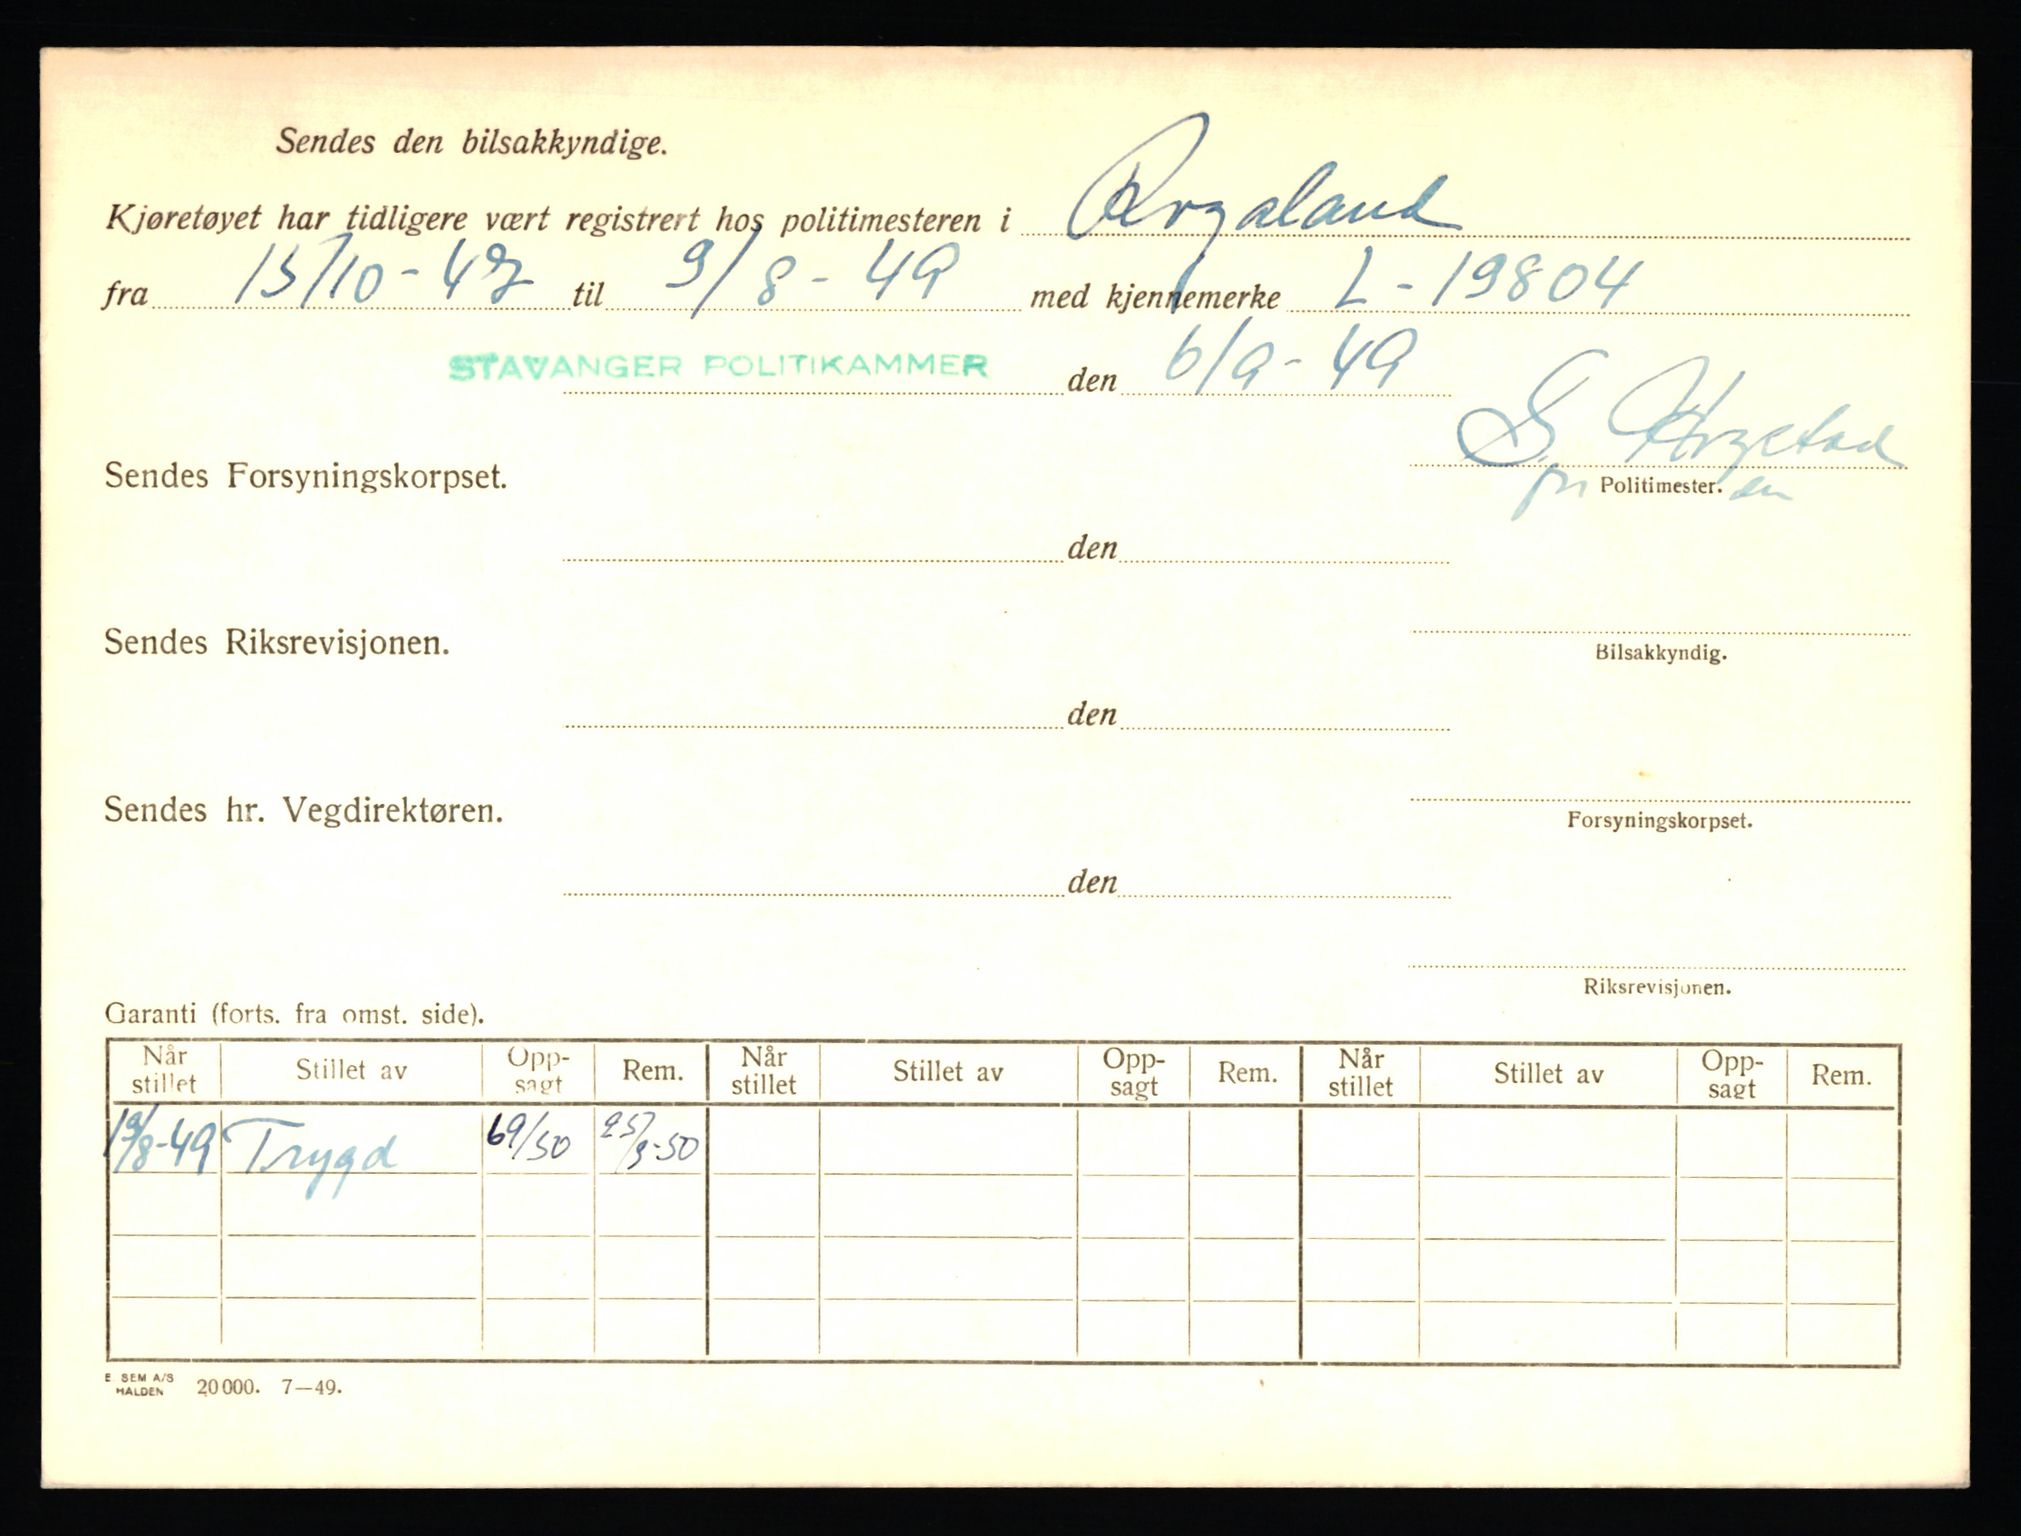 Sendes den bilsakkyndige.
Kjøretøyet har tidligere vært registrert hos politimesteren i Rogaland
fra 15/10-47 til 9/8-49 med kjennemerke L-19804
STAVANGER POLITIKAMMER den 6/9-49
Sendes Forsyningskorpset.
Politimester.
den
Sendes Riksrevisjonen.
Bilsakkyndig.
den
Sendes hr. Vegdirektøren.
Forsyningskorpset.
den
Riksrevisjonen.
Garanti (forts. fra omst. side).
Når stillet Stillet av Opp-sagt Rem. Når stillet Stillet av Opp-sagt Rem. Når stillet Stillet av Opp-sagt Rem.
Trygd
E. SEM A/S
HALDEN 20000. 7—49.